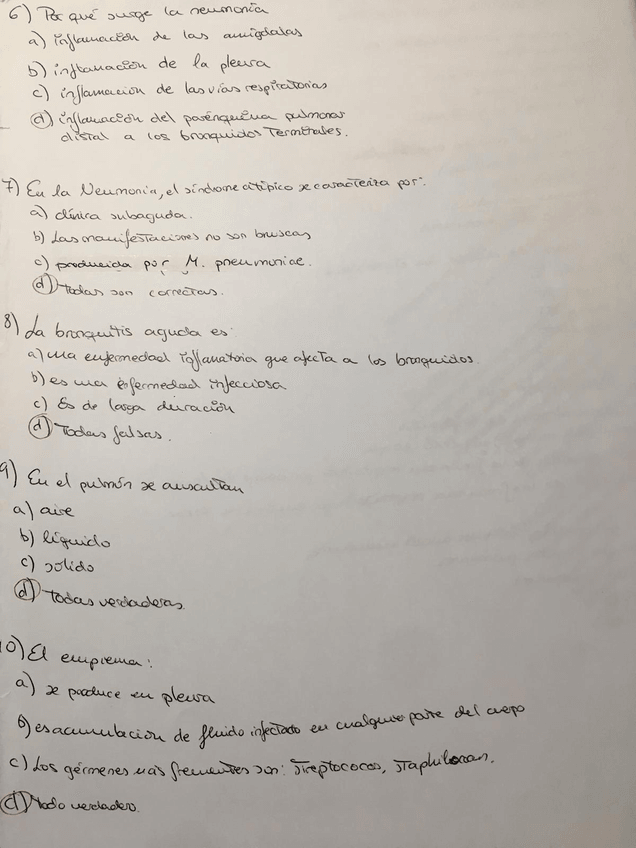 6) Por qué surge la neumonía
a) inflamación de las amigdalas
b) inflamación de la pleura
c) inflamación de las vías respiratorias
d) inflamación del parénquima pulmonar
distal a los bronquidos Terminales.
7) En la Neumonía, el síndrome atípico se caracteriza por:
a) clínica subaguda.
b) Las manifestaciones no son bruscas
c) producida por M. pneumoniae.
d) Todas son correctas.
8) La bronquitis aguda es:
a) una enfermedad inflamatoria que afecta a los bronquidos.
b) es una enfermedad infecciosa
c) Es de larga duración
d) Todas falsas.
9) En el pulmón se auscultan
a) aire
b) líquido
c) sólido
d) Todas verdaderas.
10) El empiema:
a) se produce en pleura
b) es acumulacion de fluido infectado en cualquier parte del cuerpo
c) Los gérmenes más frecuentes son: Streptococos,
d) Todo verdadero.